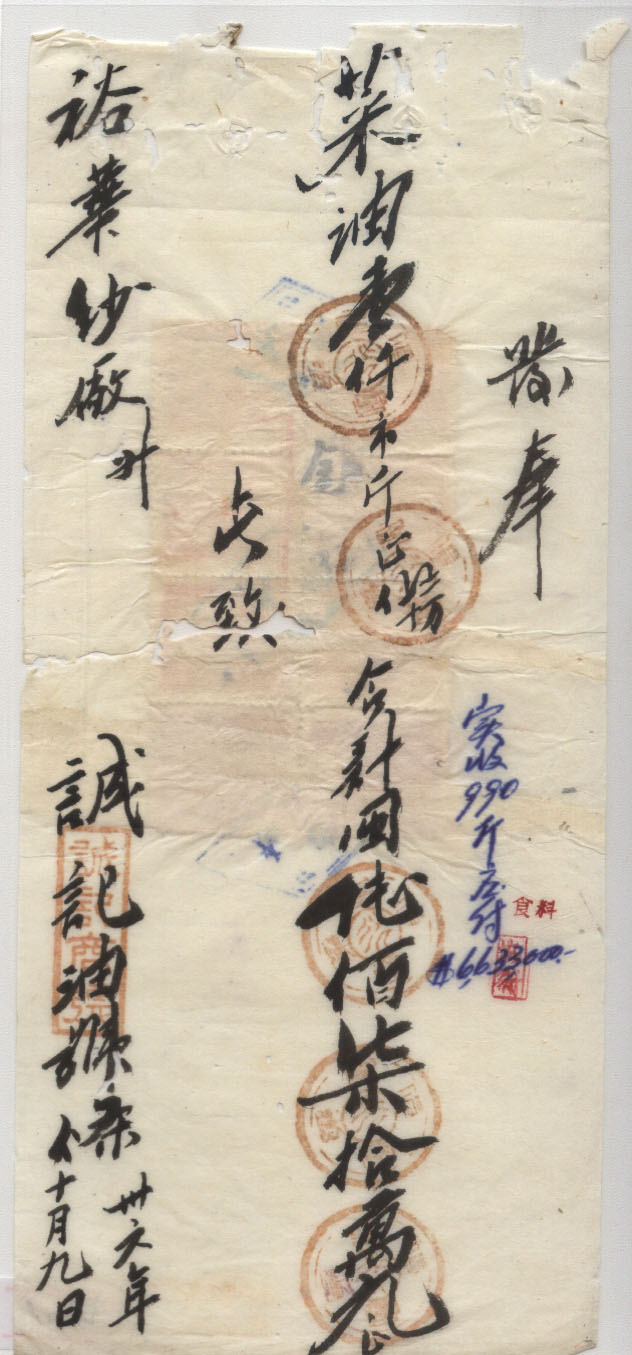 發奉
菜油壹仟市斤正 合計國 陸佰柒拾萬元正
实收990斤应付
$6633000.-
食料
台照
裕華紗廠
誠記油號条
卅六年
十月九日